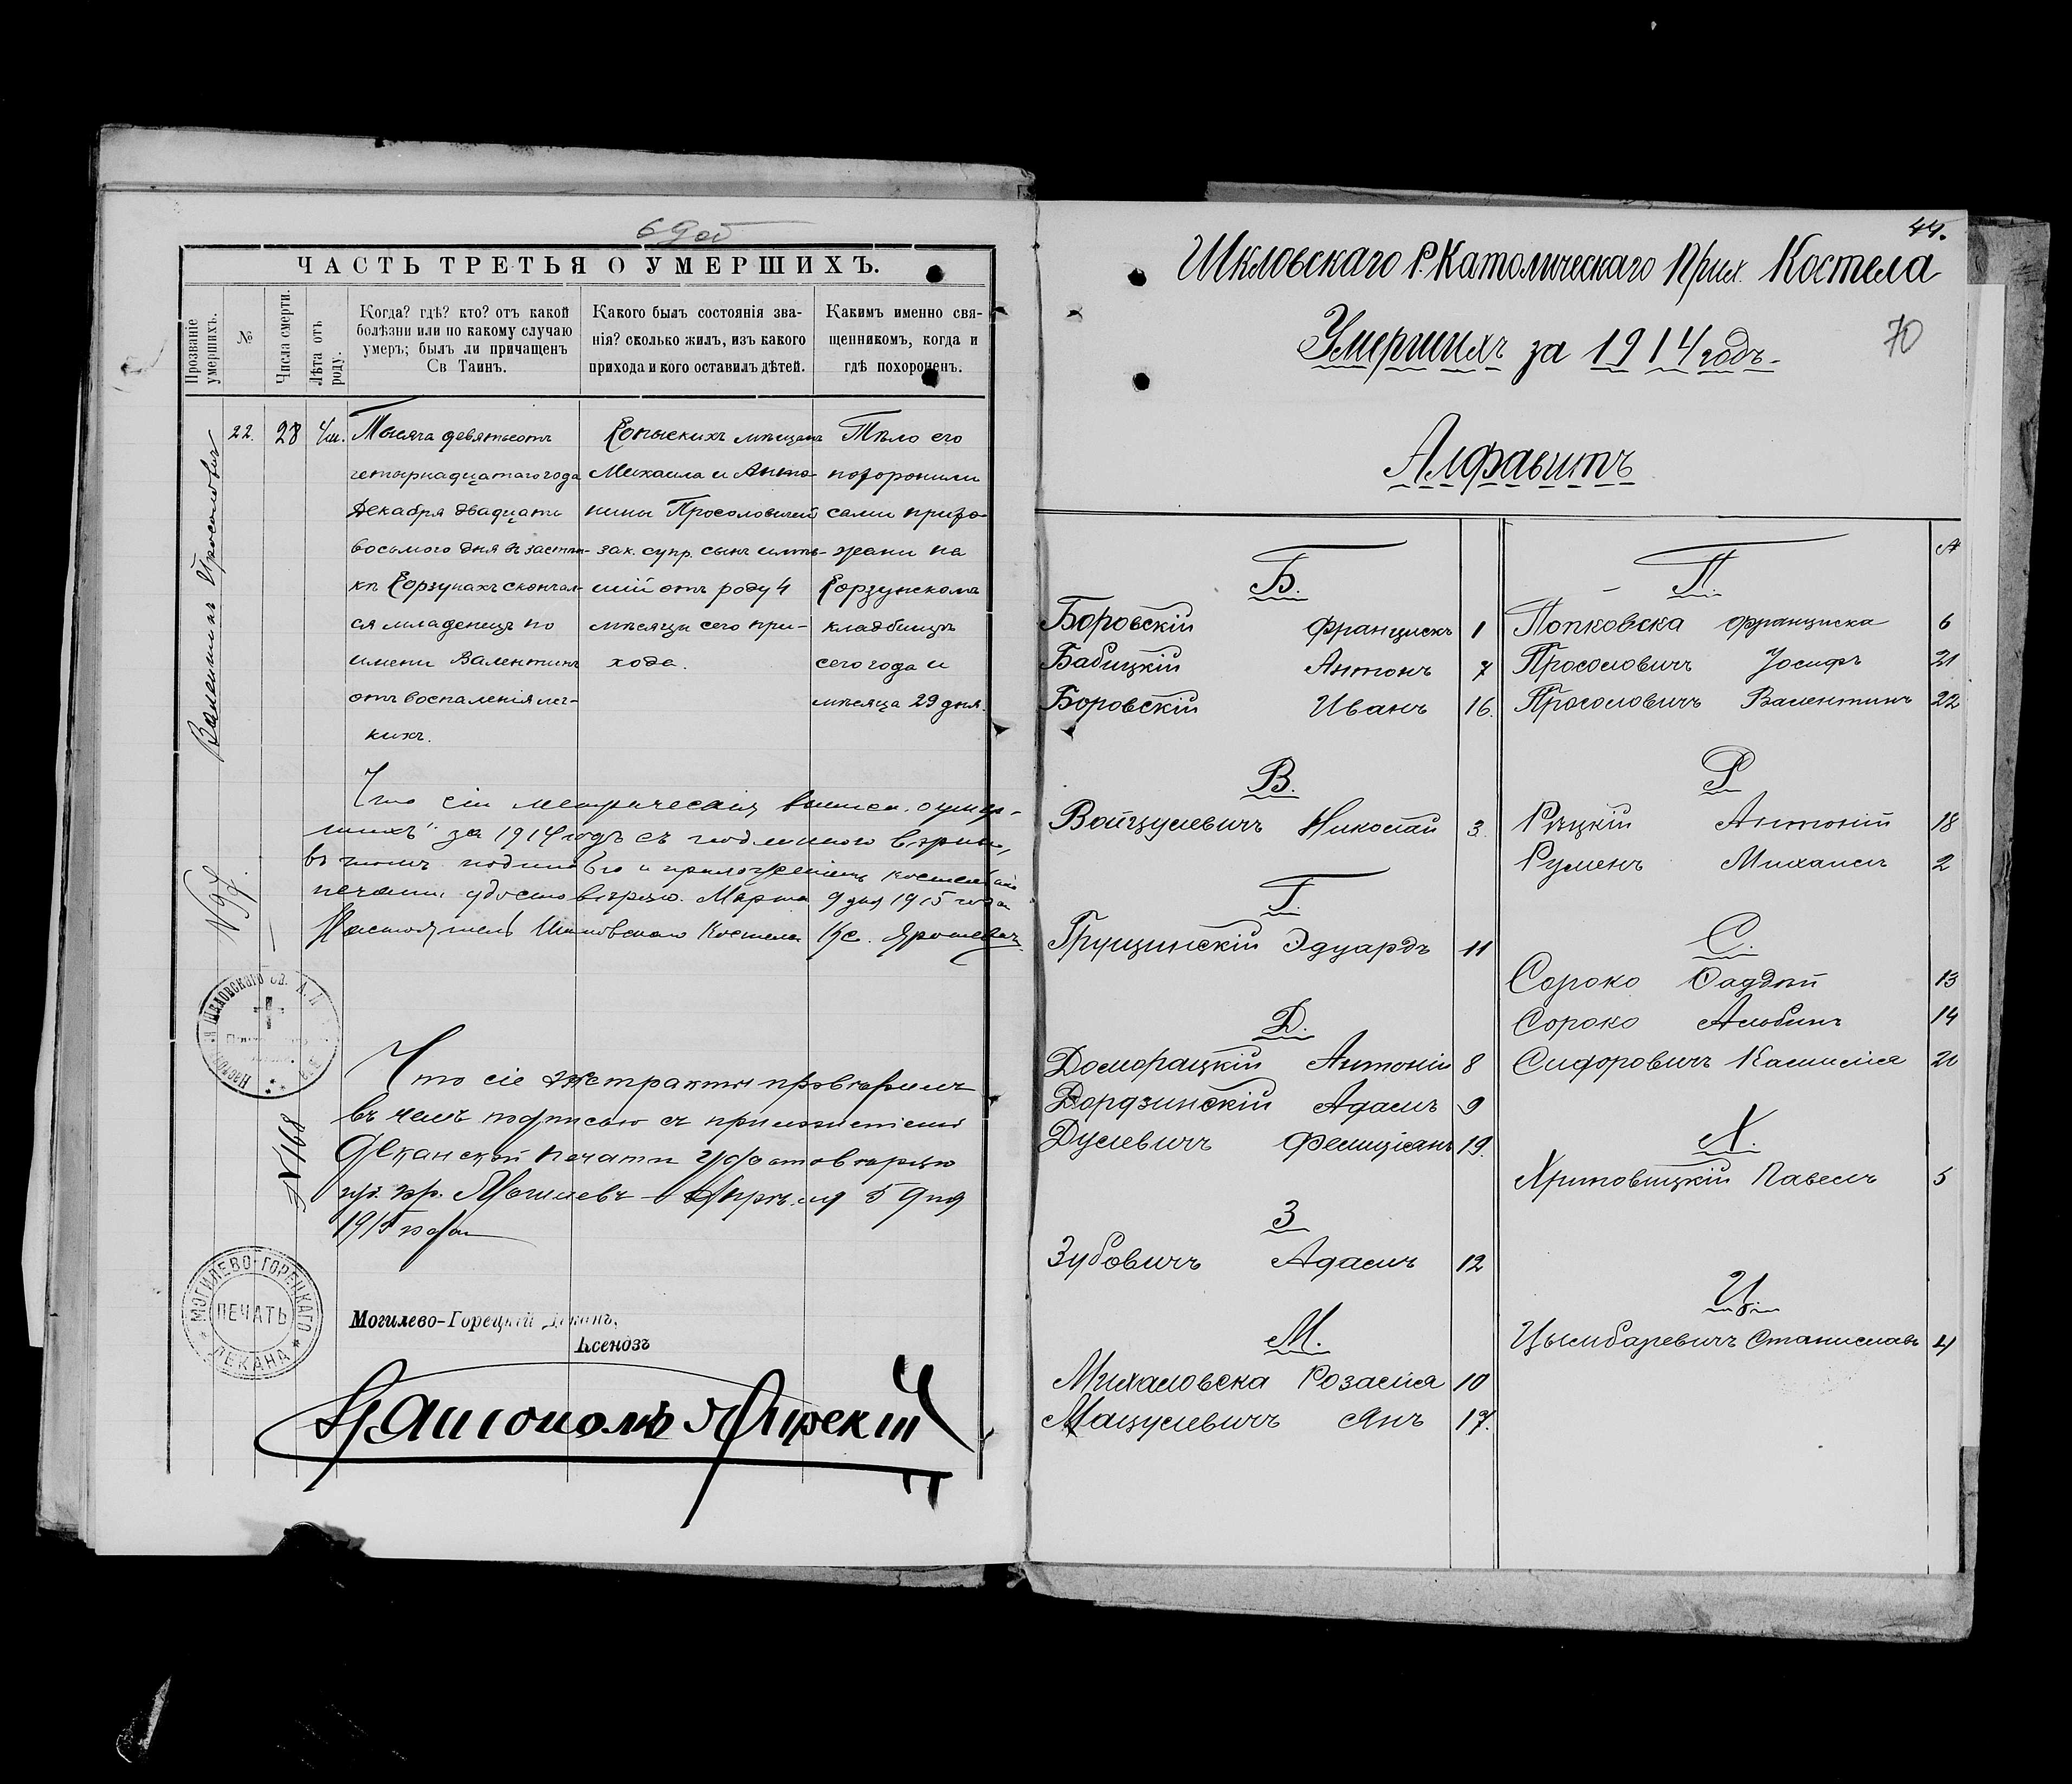 69 об
ЧАСТЬ ТРЕТЬЯ О УМЕРШИХЪ.
Прозваніе умершихъ.
№
Числа смерти.
Лѣта отъ роду.
Когда? гдѣ? кто? отъ какой
болѣзни или по какому случаю
умеръ; былъ ли причащенъ
Св Таинъ.
Какого былъ состоянія зва-
нія? сколько жилъ, изъ какого
прихода и кого оставилъ дѣтей.
Какимъ именно свя-
щенникомъ, когда и
гдѣ похороненъ.
Валентинъ Просоловичъ
22.
28
4 м.
Тысяча девятьсотъ
четырнадцатаго года
Декабря двадцать
восьмого дня въ застѣн-
кѣ Корзунахъ скончал-
ся младенецъ по
имени Валентинъ
отъ воспаленія лег-
кихъ.
Копыскихъ мѣщанъ
Михаила и Анто-
нины Просоловичей
зак. супр. сынъ имѣв-
шій отъ роду 4
мѣсяца сего при-
хода.
Тѣло его
похоронили
сами прихо-
жане на
Корзунскомъ
кладбищѣ
сего года и
мѣсяца 29 дня.
Что сіи метрическія выписи о умер-
шихъ за 1914 годъ съ подлинною вѣрны,
въ томъ подписью и приложеніемъ костельной
печати удостовѣряю. Марта 9 дня 1915 года
Настоятель Шкловскаго Костела Кс. Ярошевичъ
N 97.
Что сіе экстракты провѣрилъ
въ чемъ подписью съ приложеніемъ
Деканской печати удостовѣряю
гор. Могилевъ Апрѣля 5 дня
1915 года
№ 168
МОГИЛЕВО-ГОРЕЦКАГО
ПЕЧАТЬ
ДЕКАНА
Могилево-Горецкій Деканъ,
Ксендзъ
44.
Шкловскаго Р. Католическаго Прих. Костела
Умершихъ за 1914 годъ.
70
Алфавитъ
Б.
Боровскій Францискъ 1
Бабицкій Антонъ 7
Боровскій Иванъ 16.
В.
Войцулевичъ Николай 3.
Г.
Грущинскій Эдуардъ 11
Д.
Доморацкій Антоній 8
Дордзинскій Адамъ 9
Дулевичъ Фелиціанъ 19.
З
Зубовичъ Адамъ 12
М.
Михаловска Розалія 10
Мацулевичъ Янъ 17.
№
П.
Попковска Франциска 6
Просоловичъ Іосифъ 21
Просоловичъ Валентинъ 22
Р
Руцкій Антоній 18
Руменъ Михаилъ 2
С.
Сороко Фаддей 13
Сороко Альбинъ 14
Сидоровичъ Камилія 20
Х.
Хритовицкій Павелъ 5
Ц.
Цымбаревичъ Станиславъ 4